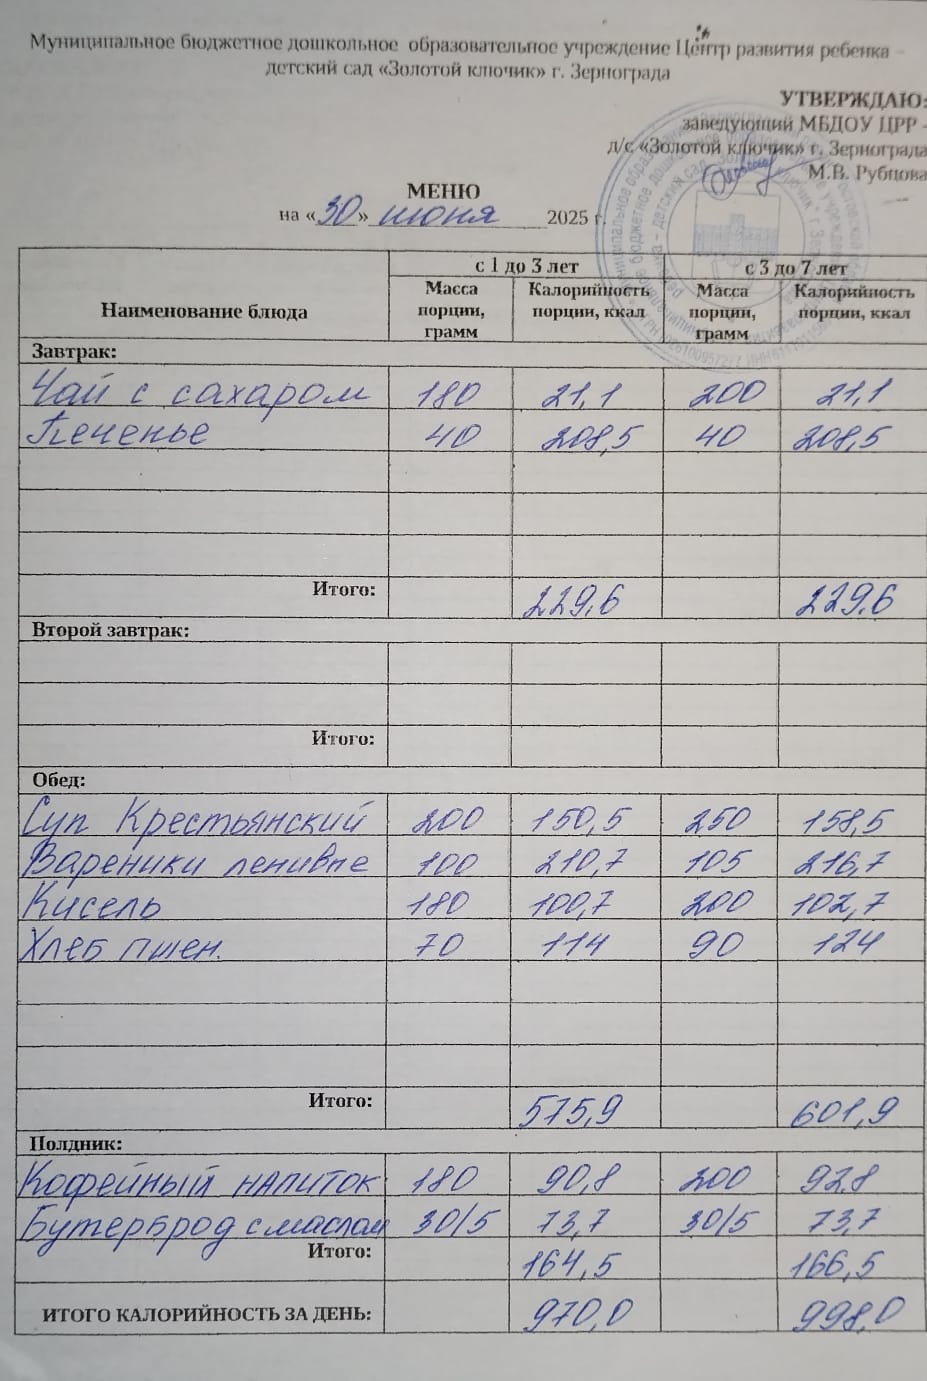 Муниципальное бюджетное дошкольное образовательное учреждение Центр развития ребенка –
детский сад «Золотой ключик» г. Зернограда
УТВЕРЖДАЮ:
заведующий МБДОУ ЦРР -
д/с «Золотой ключик» г. Зернограда
М.В. Рубцова
МЕНЮ
на «30» июня 2025 г.
Наименование блюда с 1 до 3 лет с 3 до 7 лет
Масса порции, грамм Калорийность порции, ккал Масса порции, грамм Калорийность порции, ккал
Завтрак:
Чай с сахаром 180 21,1 200 21,1
Печенье 40 208,5 40 208,5
Итого: 229,6 229,6
Второй завтрак:
Итого:
Обед:
Суп Крестьянский 200 150,5 250 158,5
Вареники ленивые 100 210,7 105 216,7
Кисель 180 100,7 200 102,7
Хлеб пшен. 70 114 90 124
Итого: 575,9 601,9
Полдник:
Кофейный напиток 180 90,8 200 92,8
Бутерброд с маслом 30/5 73,7 30/5 73,7
Итого: 164,5 166,5
ИТОГО КАЛОРИЙНОСТЬ ЗА ДЕНЬ: 970,0 998,0